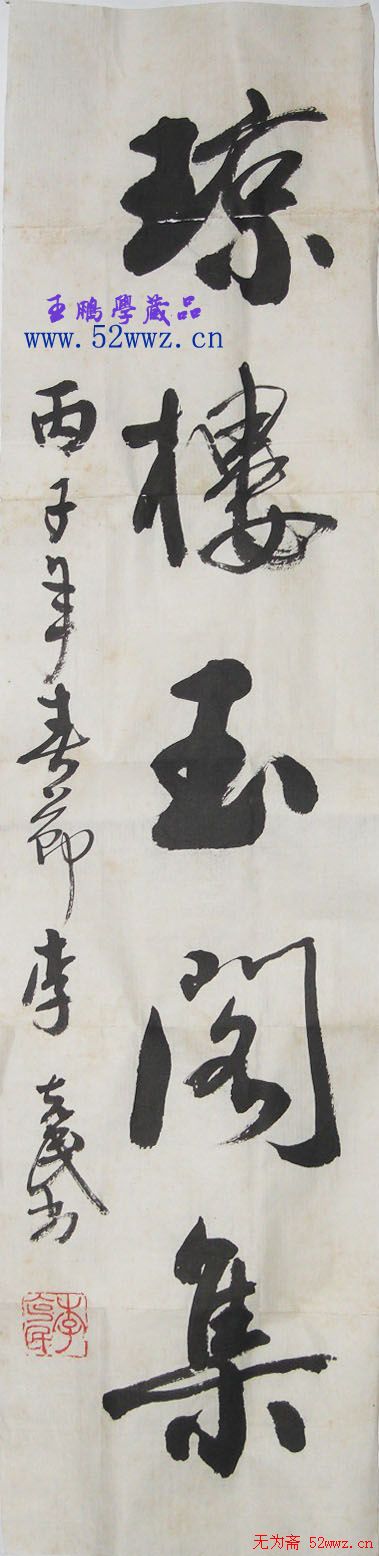 琼樓玉阁集
丙子年春節李
王鵬學藏品
www.52wwz.cn
无为斋 52wwz.cn